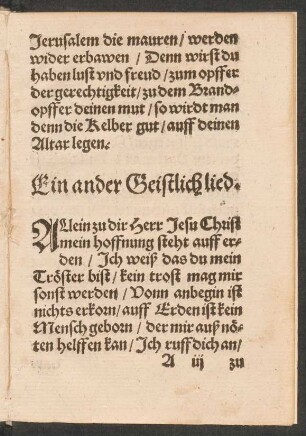 Jerusalem die mauren / werden
wider erbawen / Denn wirst du
haben lust vnd freud / zum opffer
der gerechtigkeit / zu dem Brand-
opffer deinen mut / so wirdt man
denn die Kelber gut / auff deinen
Altar legen.
Ein ander Geistlich lied.
ALlein zu dir Herr Jesu Christ
mein hoffnung steht auff er-
den / Ich weiß das du mein
Tröster bist / kein trost mag mir
sonst werden / Vonn anbegin ist
nichts erkorn / auff Erden ist kein
Mensch geborn / der mir auß nö-
ten helffen kan / Ich ruff dich an /
A iij zu